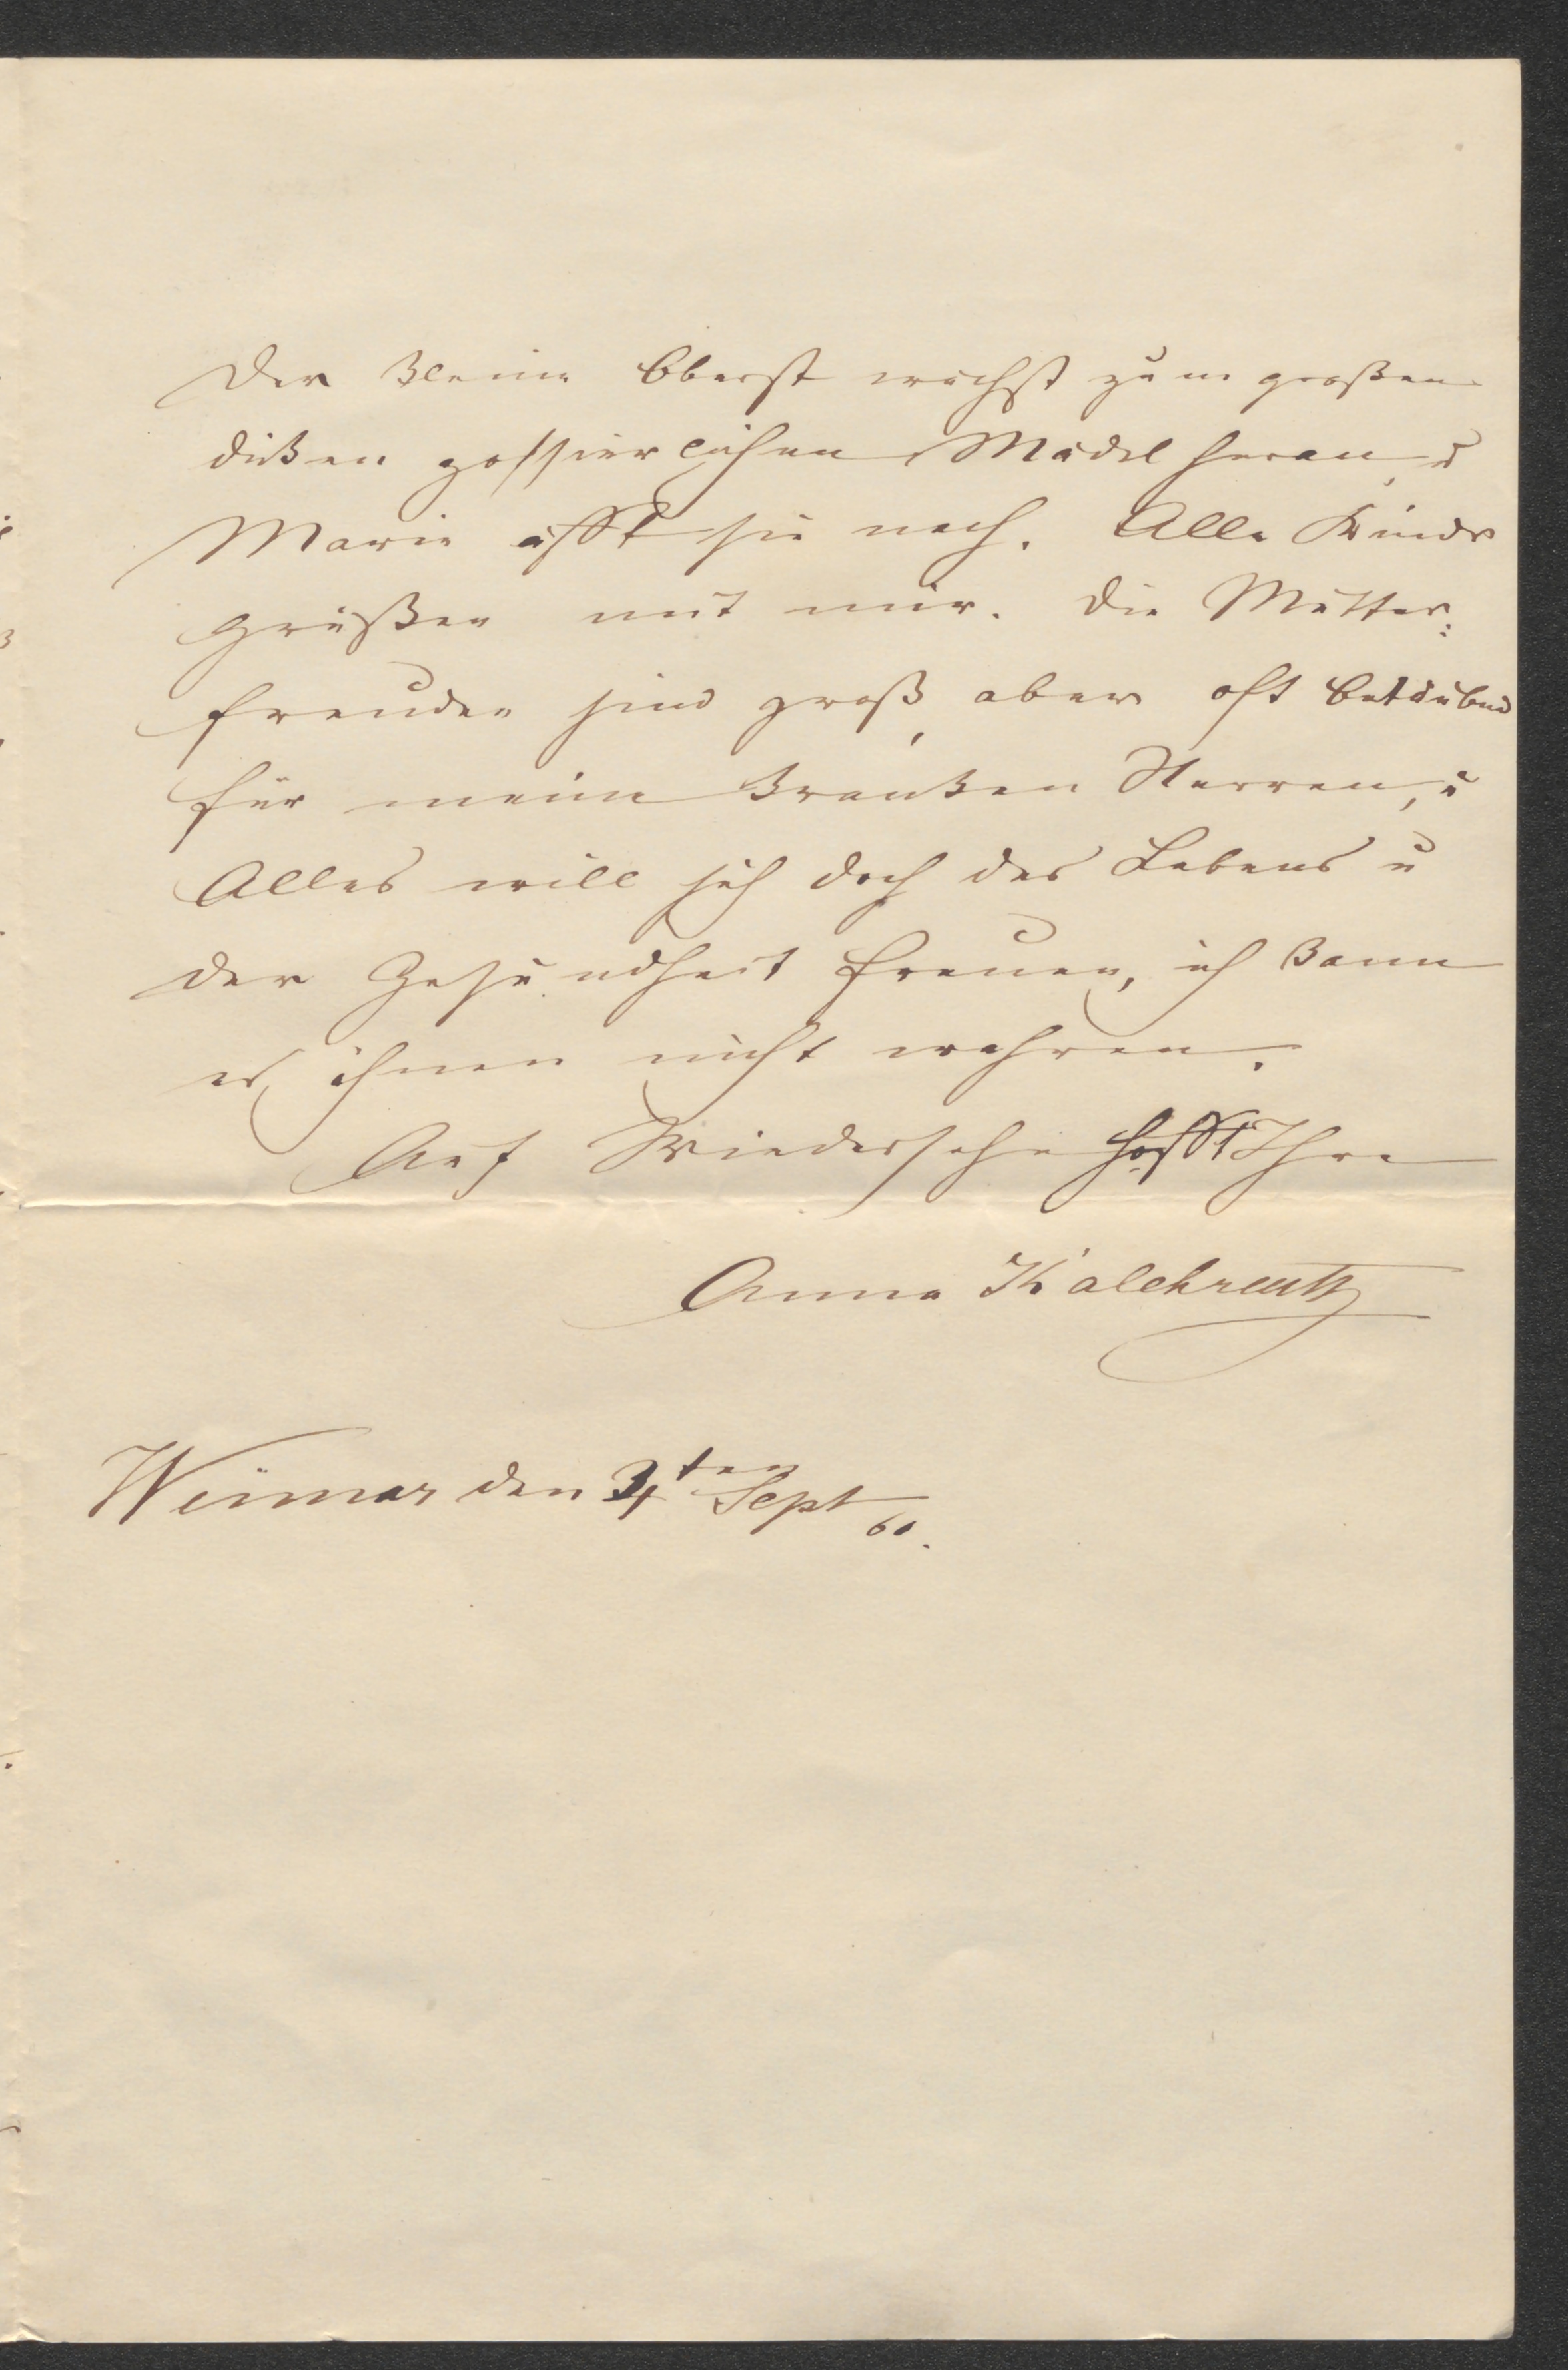 Der kleine Oberst wächst zum großen
dicken possierlichen Mädel heran, u
Marie äfft sie nach. Alle Kinder
grüßen mit mir. Die Mutter:
freuden sind groß, aber oft betäubend
für meine kranken Nerven, u
Alles will sich doch des Lebens u
der Gesundheit freuen, ich kann
es ihnen nicht wehren.
Auf Wiedersehn hofft Ihre
Anna Kalckreuth
Weimar den 4ten Sept 60.